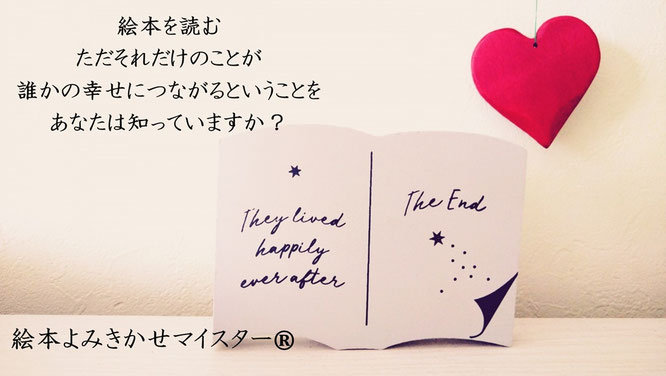 絵本を読む
ただそれだけのことが
誰かの幸せにつながるということを
あなたは知っていますか？
They lived
happily
ever after
The End
絵本よみきかせマイスター®